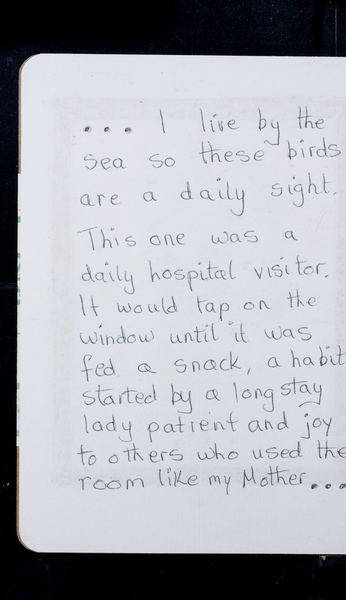 ... I live by the
sea so these birds
are a daily sight.
This one was a
daily hospital visitor.
It would tap on the
window until it was
fed a snack, a habit
started by a long stay
lady patient and joy
to others who used the
room like my Mother...